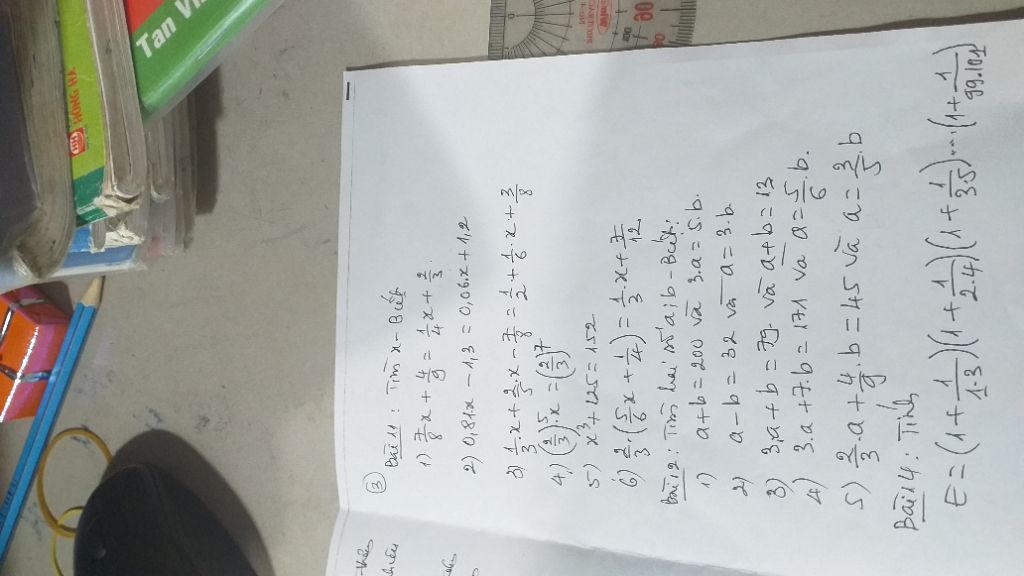 ③
Bài 11: Tìm x - Biết
1) 7/8 x + 4/9 = 1/4 x + 2/3.
2) 0,81x - 1,3 = 0,06.x + 1,2
3) 1/3.x + 2/5 x - 7/8 = 1/2 + 1/6.x + 3/8
4) (2/3)^5.x = (2/3)^7
5) x³ + 125 = 152
6) 2/3.(5/6 x + 1/4) = 1/3.x + 7/12
Bài 12: Tìm hai số a; b - Biết:
1) a + b = 200 và 3.a = 5.b.
2) a - b = 32 và a = 3.b.
3) 3.a + b = 79 và a + b = 13
4) 3.a + 7.b = 171 và a = 5/6 b.
5) 2/3.a + 4/9.b = 45 và a = 3/5 b
Bài 14: Tính
E = (1 + 1/1.3)(1 + 1/2.4)(1 + 1/3.5)...(1 + 1/99.101)
Tan
HỒNG HÀ